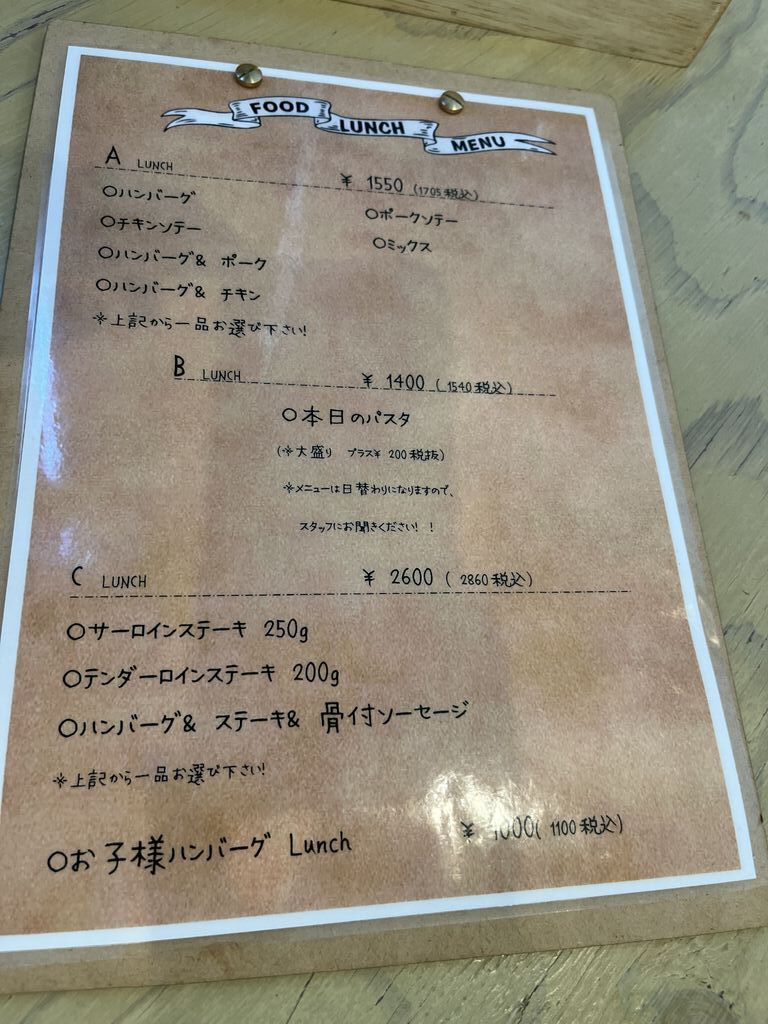 FOOD LUNCH MENU
A LUNCH ¥ 1550 (1705税込)
○ハンバーグ ○ポークソテー
○チキンソテー ○ミックス
○ハンバーグ& ポーク
○ハンバーグ& チキン
※上記から一品お選び下さい!
B LUNCH ¥ 1400 (1540税込)
○本日のパスタ
(※大盛り プラス¥ 200税抜)
※メニューは日替わりになりますので、
スタッフにお聞きください! !
C LUNCH ¥ 2600 ( 2860税込)
○サーロインステーキ 250g
○テンダーロインステーキ 200g
○ハンバーグ& ステーキ& 骨付ソーセージ
※上記から一品お選び下さい!
○お子様ハンバーグ Lunch ¥ 1000( 1100税込)